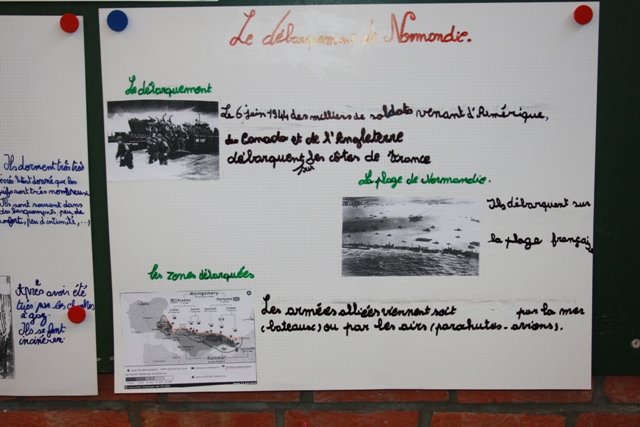 Le débarquement de Normandie.
Le débarquement
Le 6 juin 1944, des milliers de soldats venant d'Amérique,
du Canada et de l'Angleterre
débarquent sur les côtes de France
La plage de Normandie.
Ils débarquent sur
la plage française
Les zones débarquées
Montgomery
Les armées alliées viennent soit par la mer
(bateaux) ou par les airs (parachutes-avions).
Ils dorment très très
sont très nombreux
Ils sont souvent dans
peu de
confort, peu d'intimité, ...)
Après avoir été
tués par les
à gaz,
Ils se font
incinérer.